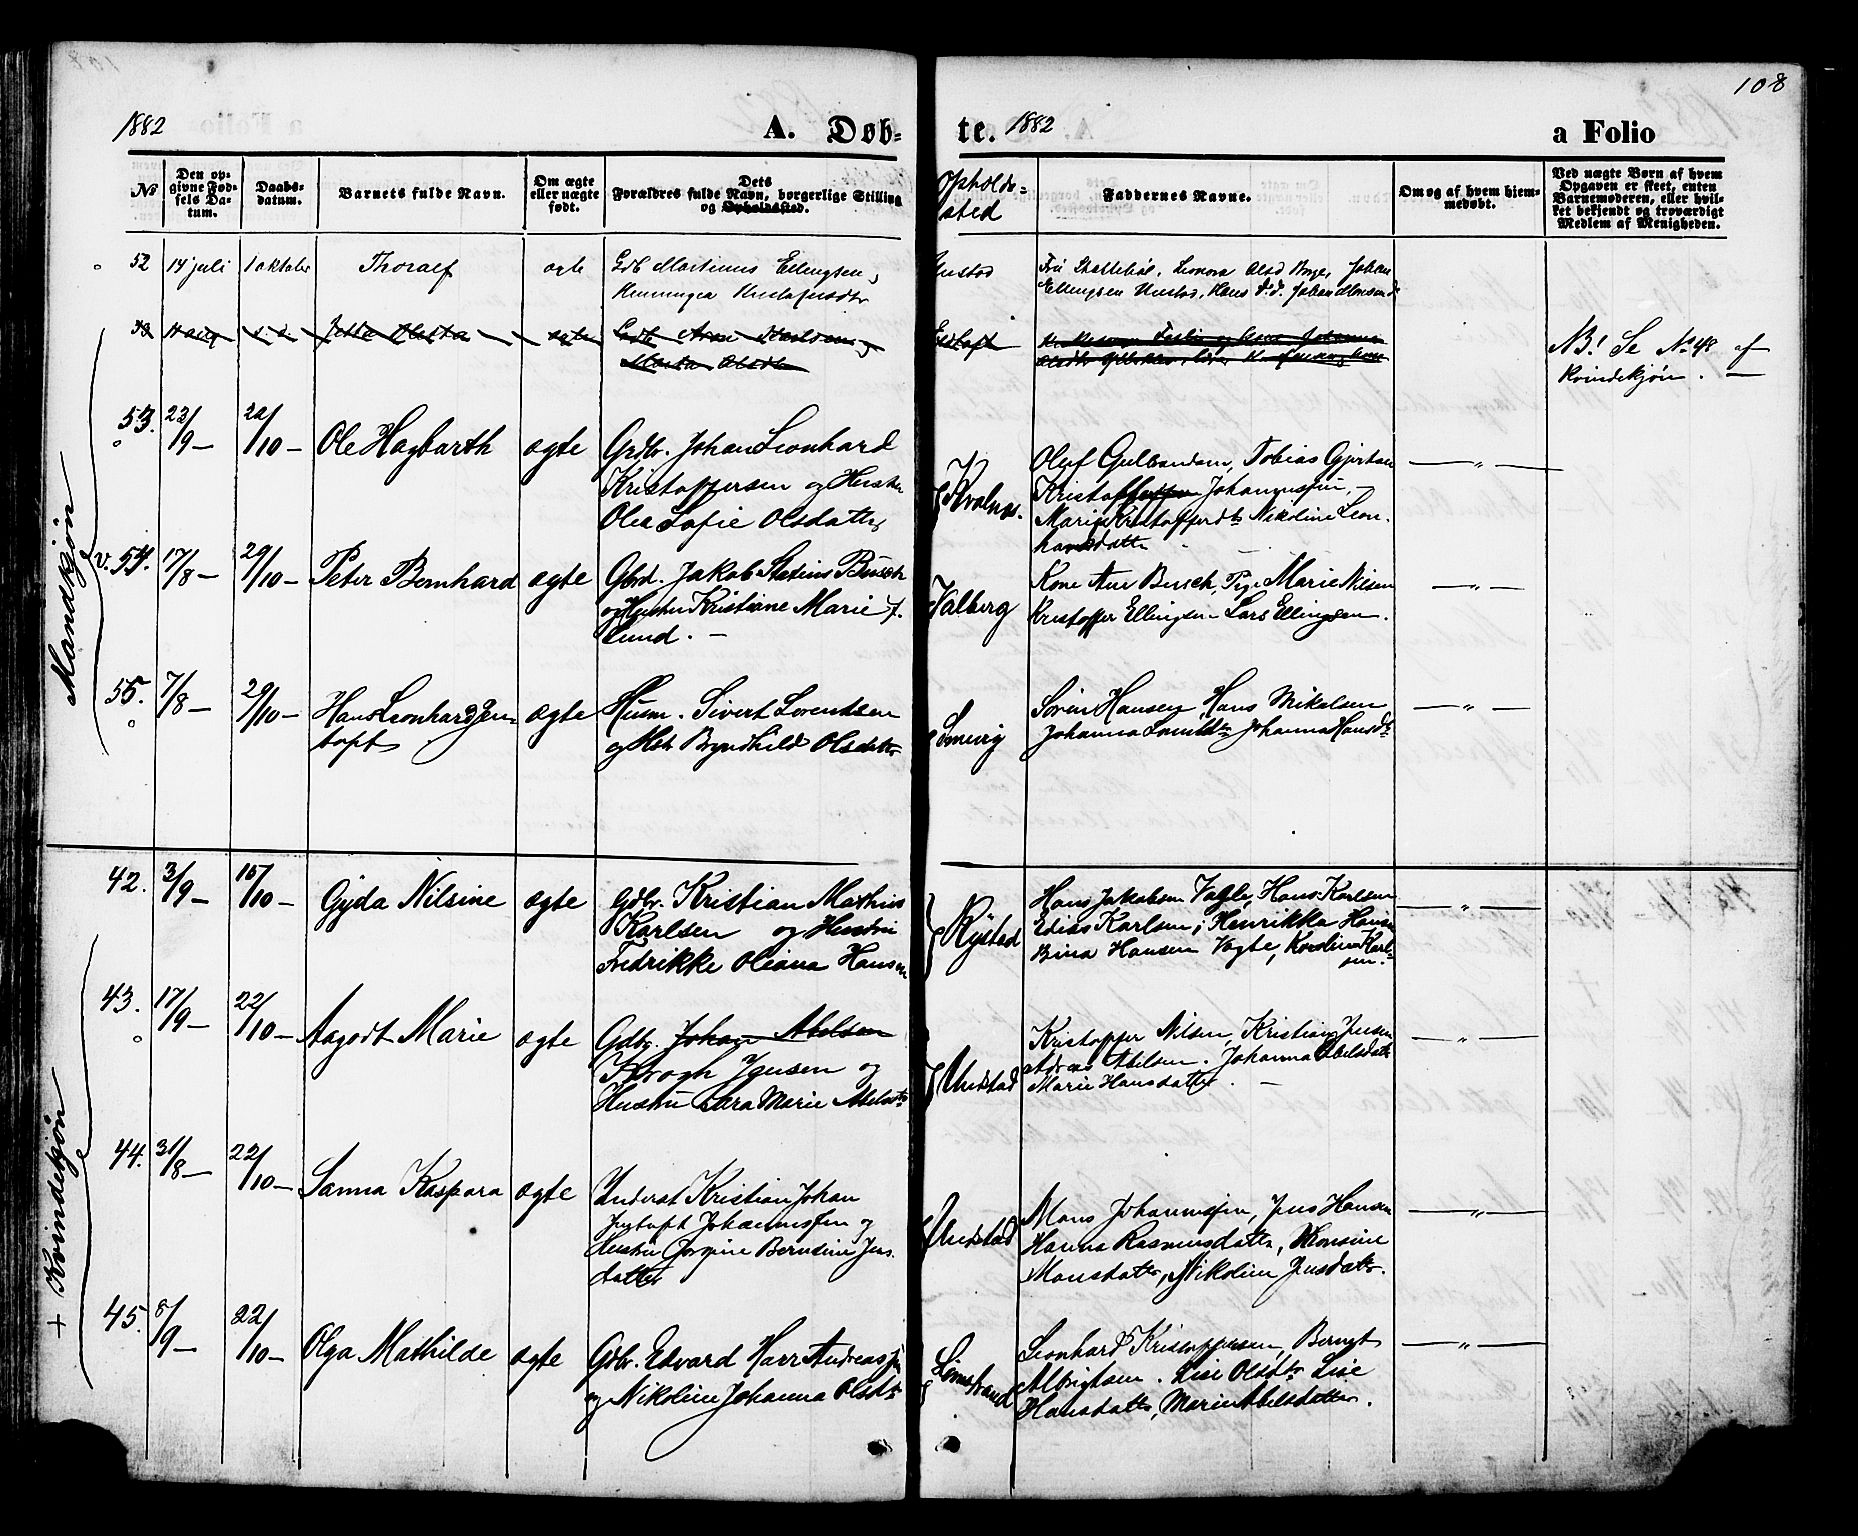 108
1882
A. Døb-
te. 1882
a Folio
No
Den op-
givne Fød-
sels Da-
tum.
Daabs-
datum.
Barnets fulde Navn.
Om ægte
eller uægte
født.
Dets
Forældres fulde Navn, borgerlige Stilling
og Opholdssted.
Opholds-
sted
Faddernes Navne.
Om og af hvem hjem-
medøbt.
Ved uægte Børn af hvem
Opgaven er skeet, enten
Barnemoderen, eller hvil-
ket bekjendt og troværdigt
Medlem af Menigheden.
Mandkjøn
52 14 juli 1 oktober Thoralf ægte Gdb Martinus Ellingsen,
Unstad
Johan
Ellingsen Unstad, Hans
NB! Se No 48 af
Kvindekjøn. —
53. 23/9 — 22/10 — Ole Hagbarth ægte Grdbr. Johan Leonhard
Kristoffersen og Hustru
Olea Sofie Olsdatter
Kvalnes.
Tobias Gjertsen
Johannessen, —
Marie Kristofferdtr Nikoline Leon-
hardsdatter
— „ —
v. 54. 17/8 — 29/10 — Peter Bernhard ægte Gbrd. Jakob Statius Busch
og Hustru Kristiane Marie f.
Lund. —
Valberg
Kone Ane Busch, Pige Marie Nilsen
Kristoffer Ellingsen Lars Ellingsen.
— „ —
55. 7/8 — 29/10 — Hans Leonhard Jen-
toft
ægte Husm. Sivert Lorentsen
og Hstr Bryndhild Olsdatter
Søren Hansen, Hans Mikalsen,
Johanna Johanna Hansdtr
— „ —
+ Kvindekjøn
42. 3/9 — 15/10 — Gyda Nilsine ægte Gdbr. Kristian Mathias
Karlsen og Hustru
Fredrikke Oleana Hansen
Rystad
Hans Jakobsen Vagle, Hans Karlsen
Edias Karlsen, Henrikka Hansen
Bina Hansen Vagle, Karoline Karl-
sen.
— „ —
43. 17/9 — 22/10 — Aagodt Marie ægte Gdbr. Johan Abelsen
Krogh Jensen og
Hustru Sara Marie Abelsdtr
Unstad
Kristoffer Nilsen, Kristian Jensen
Andreas Abelsen. Johanna Abelsdatter
Marie Hansdatter. —
— „ —
44. 31/8 — 22/10 — Sanna Kaspara ægte Inderst Kristian Johan
Jentoft Johannessen og
Hustru Jorgine Bernsine Jens-
datter
Unstad
Mons Johannessen, Jens Hansen
Hanna Rasmusdatter, Monsine
Monsdatter, Nikoline Jensdatter.
— „ —
45. 8/9 — 22/10 — Olga Mathilde ægte Gdbr. Edvard Harr Andreassen
og Nikoline Johanna Olsdtr
Limstrand
Leonhard Kristoffersen, Berngt
Albrigtsen. Lise Olsdtr Lise
Hansdatter, Marie Abelsdatter.
— „ —